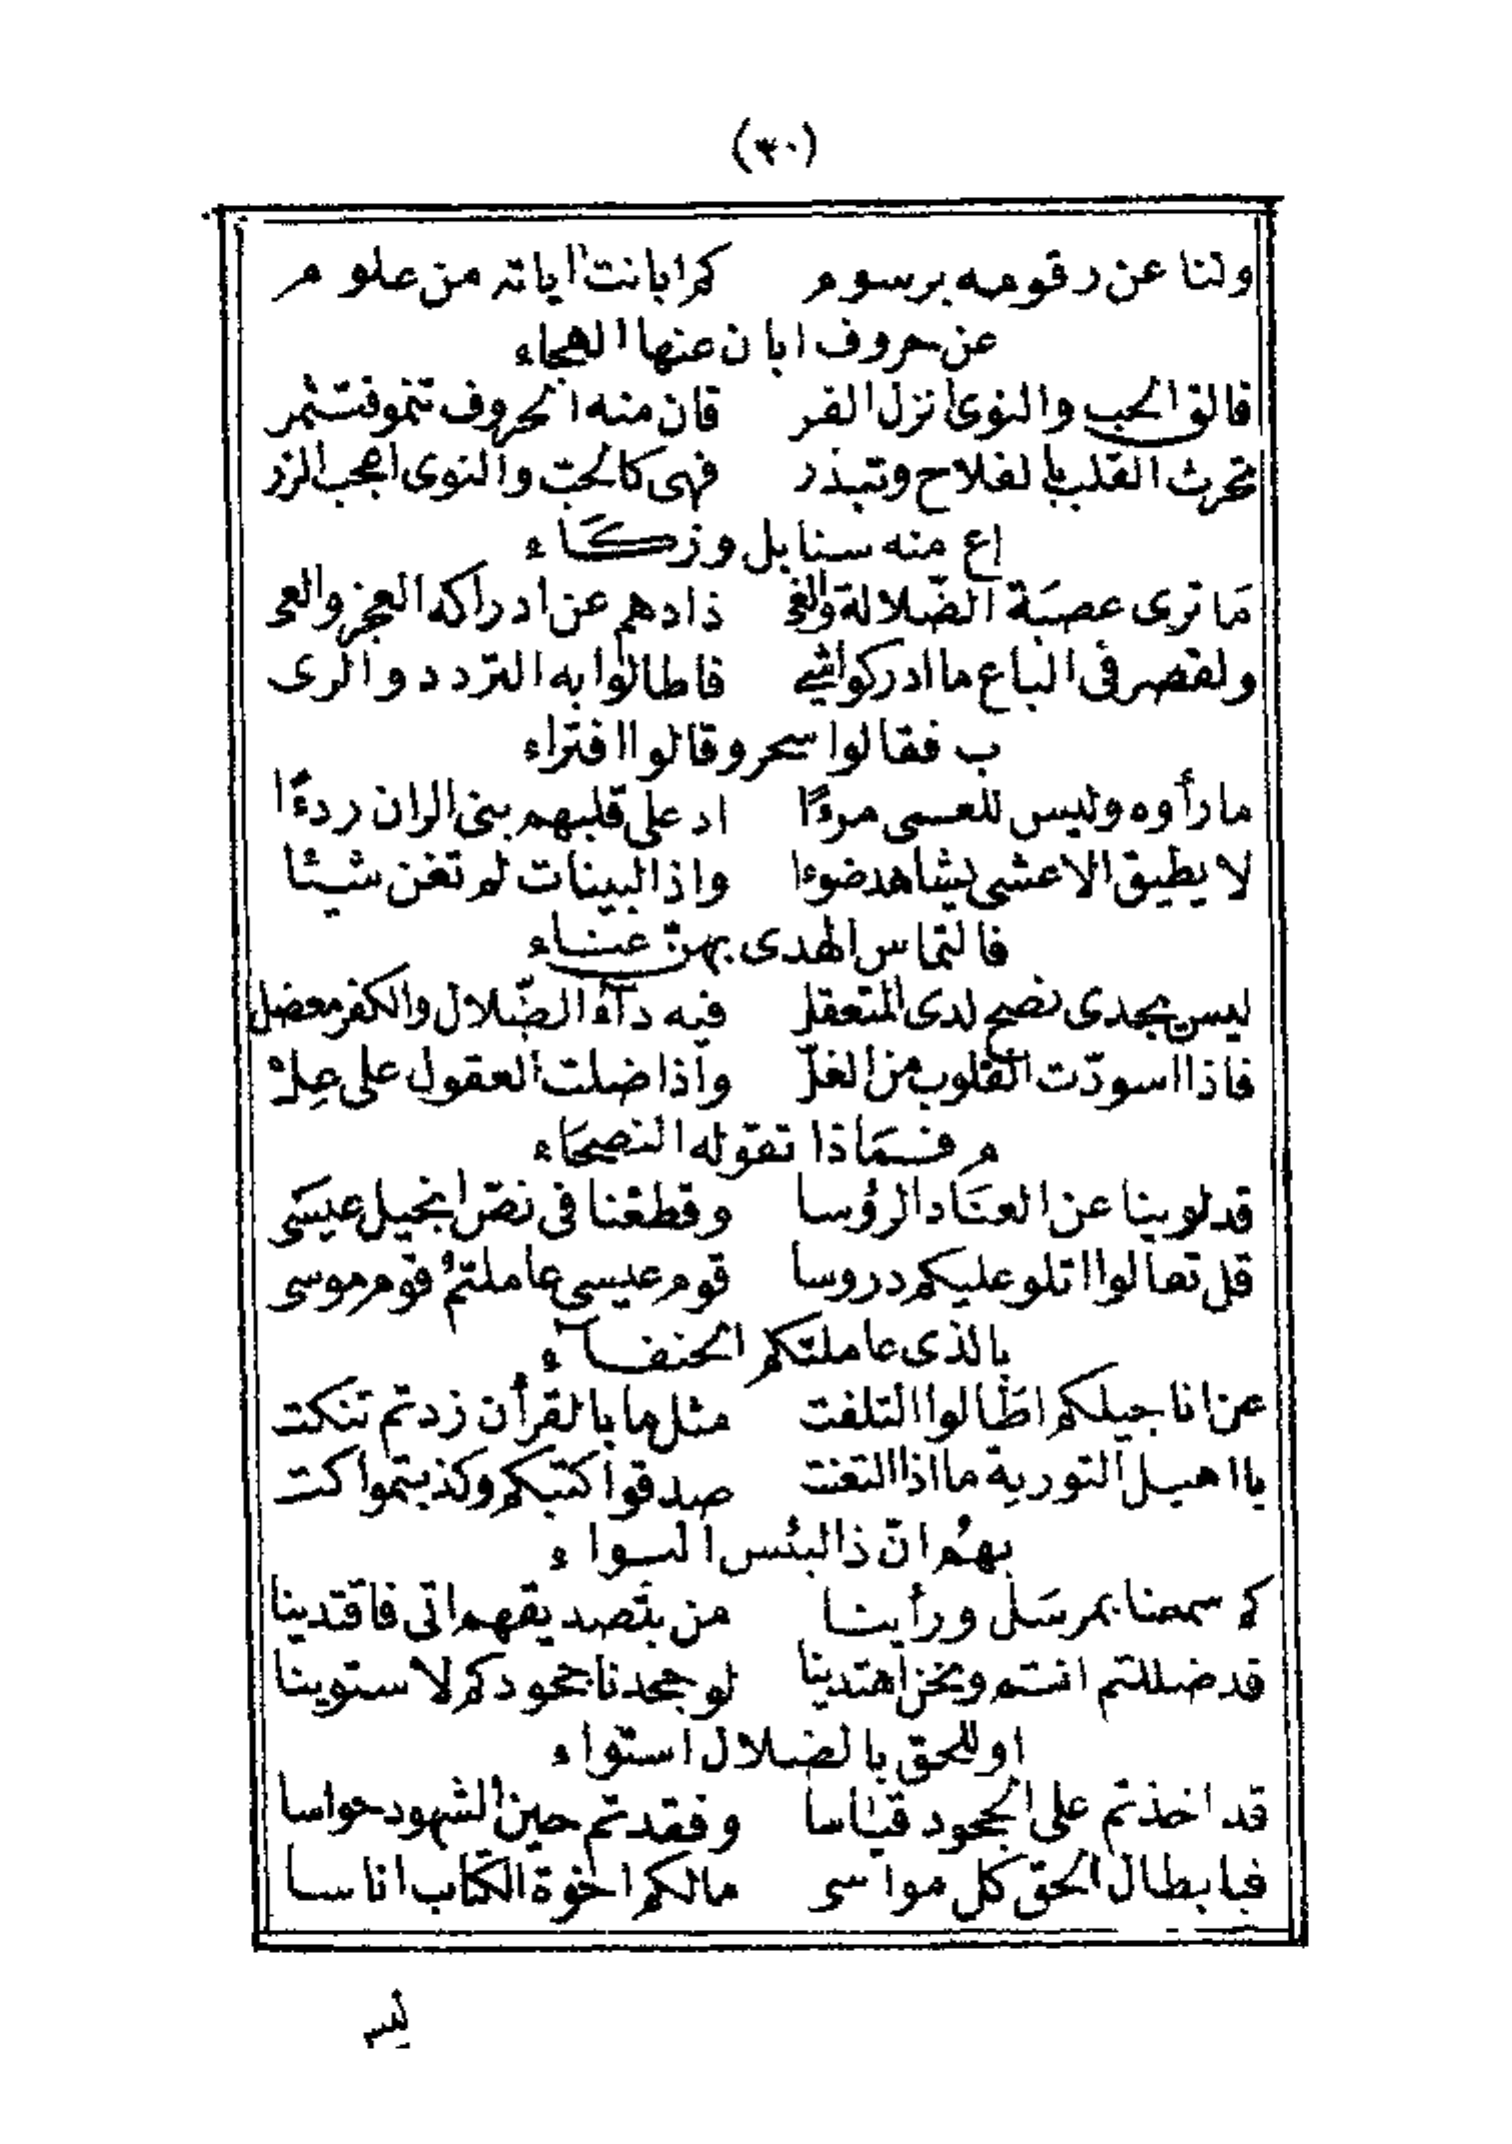 (٣٠)
ولنا عن رقومه برسوم كم ابانت اياته من علوم
عن حروف ابان عنها الهجاء
فالق الحب والنوى انزل القر قان منه الحروف تنمو فتثمر
تحرث القلب بالفلاح وتبذر فهى كالحب والنوى اعجب الزر
اع منه سنابل وزكاء
مَا ترى عصبَة الضّلالة والغى ذادهم عن ادراكه العجز والعى
ولقصر فى الباع ما ادركوا شيى فاطالوا به التردد والرى
ب فقالوا سحر وقالوا افتراء
ما رأوه وليس للعمى مرءًا اد على قلبهم بنى الران ردءًا
لا يطيق الاعشى يشاهد ضوءا واذا البينات لم تغن شيئا
فالتماس الهدى بهن عناء
ليس يجدى نصح لدى المتعقل فيه دآء الضّلال والكفر معضل
فاذا اسودّت القلوب من الغلّ واذا ضلت العقول على عِلْ
م فمَاذا تقوله النصحَاء
قد لوينا عن العنَاد الرؤسا وقطعْنا فى نصّ انجيل عيسَى
قل تعالوا اتلو عليكم دروسا قوم عيسى عاملتمْ قوم موسى
بالذى عاملتكم الحنفآء
عن اناجيلكم اطَالوا التلفت مثل ما بالقرأن زدتم تنكت
يا اهيل التورية ما اذا التعنت صدقوا كتبكم وكذبتموا كت
بهمُ انّ ذا لبئس البواء
كم سمعنا بمرسَل ورأينا من بتصديقهم اتى فاقتدينا
قد ضللتم انتم ونحن اهتدينا لو جحدنا جحودكم لاستوينا
او للحق بالضلال استواء
قد اخذتم على الجحود قيٰاسا وفقدتم حين الشهود حواسا
فبابطال الحق كل مواسى مالكم اخوة الكتاب اناسا
ليس